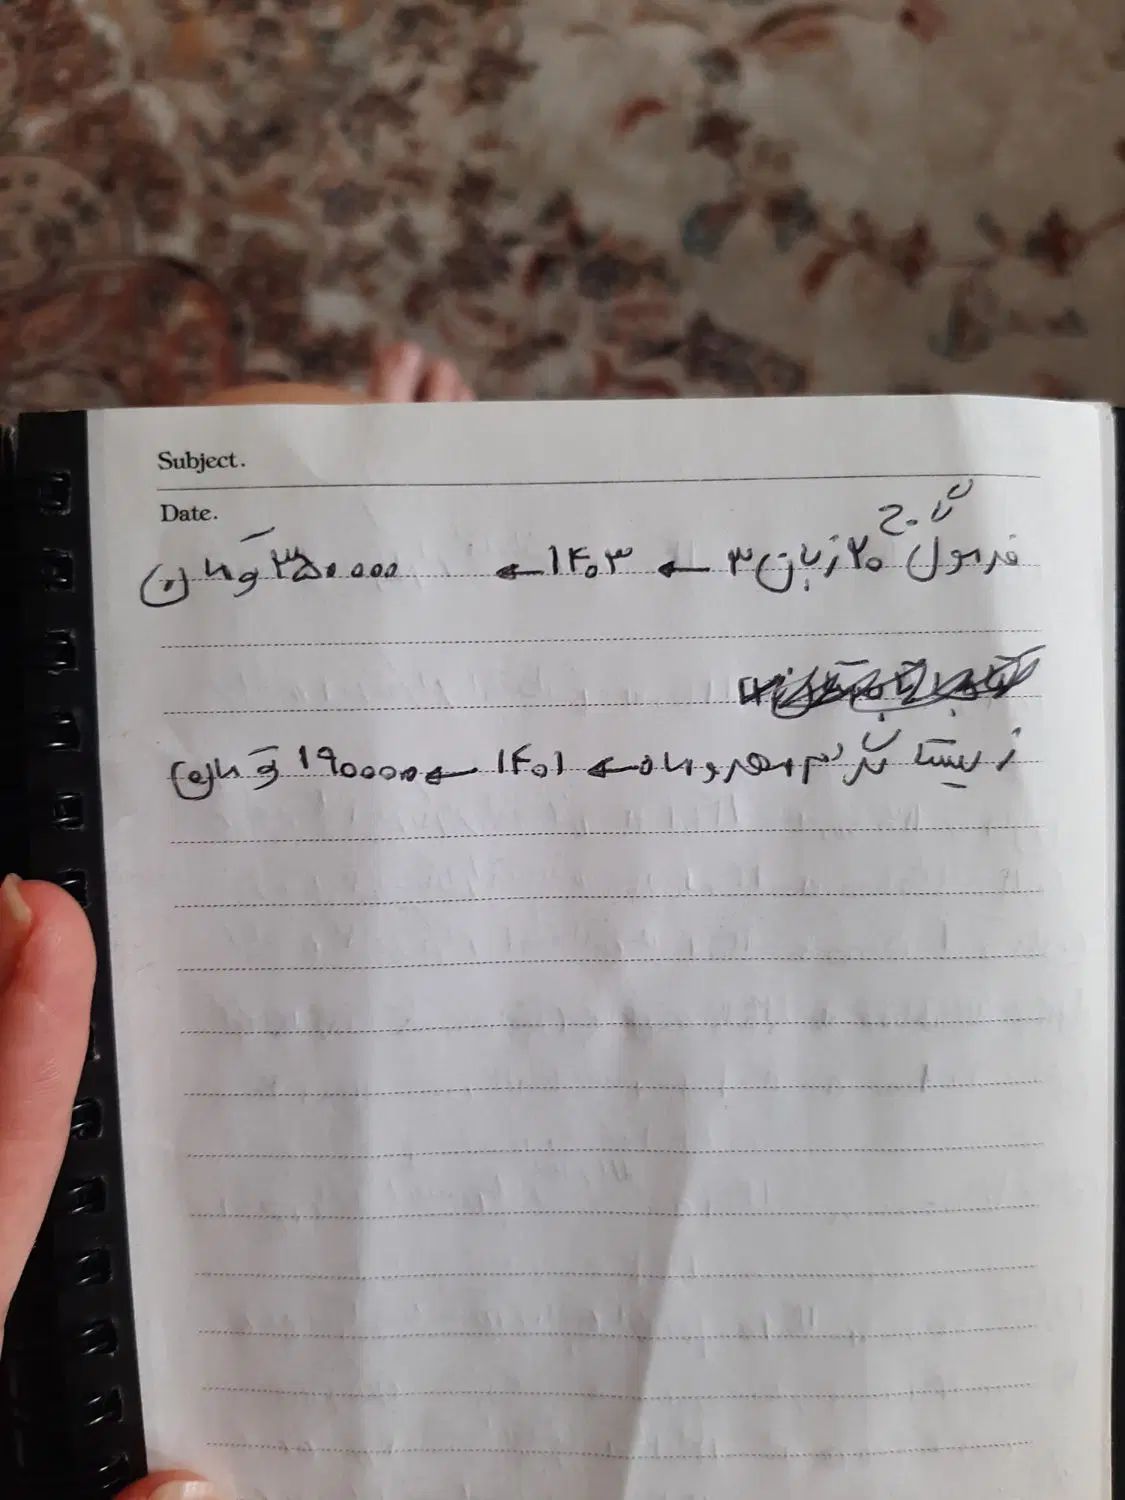 Subject.
Date.
گاج
فرمول ۲۰ زبان ۳ ← ۱۴۰۳ ← ۳۵۰۰۰۰ تومان
زیست دهم مهروماه ← ۱۴۰۱ ← ۱۹۰۰۰۰ تومان